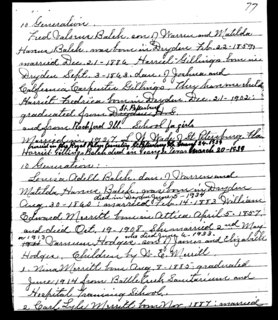 77
10 Generation.
Fred Palmer Balch, son of Warren and Matilda
Harris Balch, was born in Dryden Feb. 22-1859,
married Dec. 21-1886 Harriet Gillings born in
Dryden Sept. 3-1863, dau. of Joshua and
California Carpenter Gillings. They have one child
Harriet Fredrica born in Dryden Dec. 21-1902:
graduated from
and from Rockford Ill. School for girls
Married in 1927 of St Petersburg Fla
Harriet Gillings Balch died in March 30-1938
10 Generation:
Louisa Adell Balch, dau. of Warren and
Matilda Harris Balch, was born in Dryden
Aug. 30-1860: married Feb. 14-1883 William
Edward Merritt born in Attica April 5-1857,
and died Oct. 19-1908. She married 2nd May
in 1913 who died June 6-1933.
Harrison Hodges, son of James and Elizabeth
Hodges. Children by W. E. Merritt
1. Nina Merritt born Aug. 8-1885: graduated
June 1914 from Battle Creek Sanitarium and
Hospital Training School.
2. Carl Lyle Merritt born Nov. 1887: married